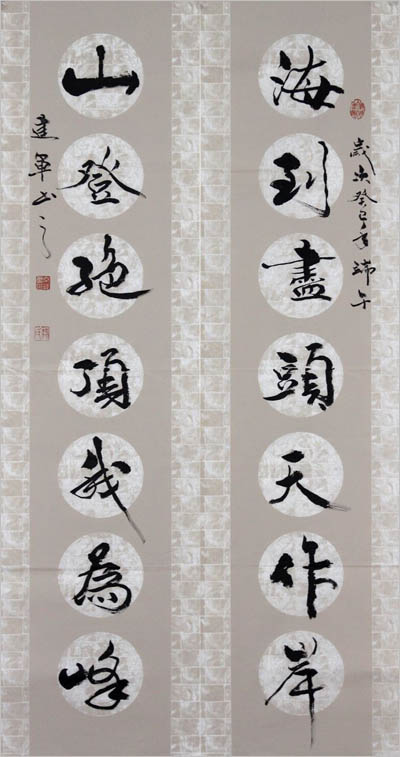 歲次癸巳年端午
海到盡頭天作岸
山登絶頂我為峰
建軍书之